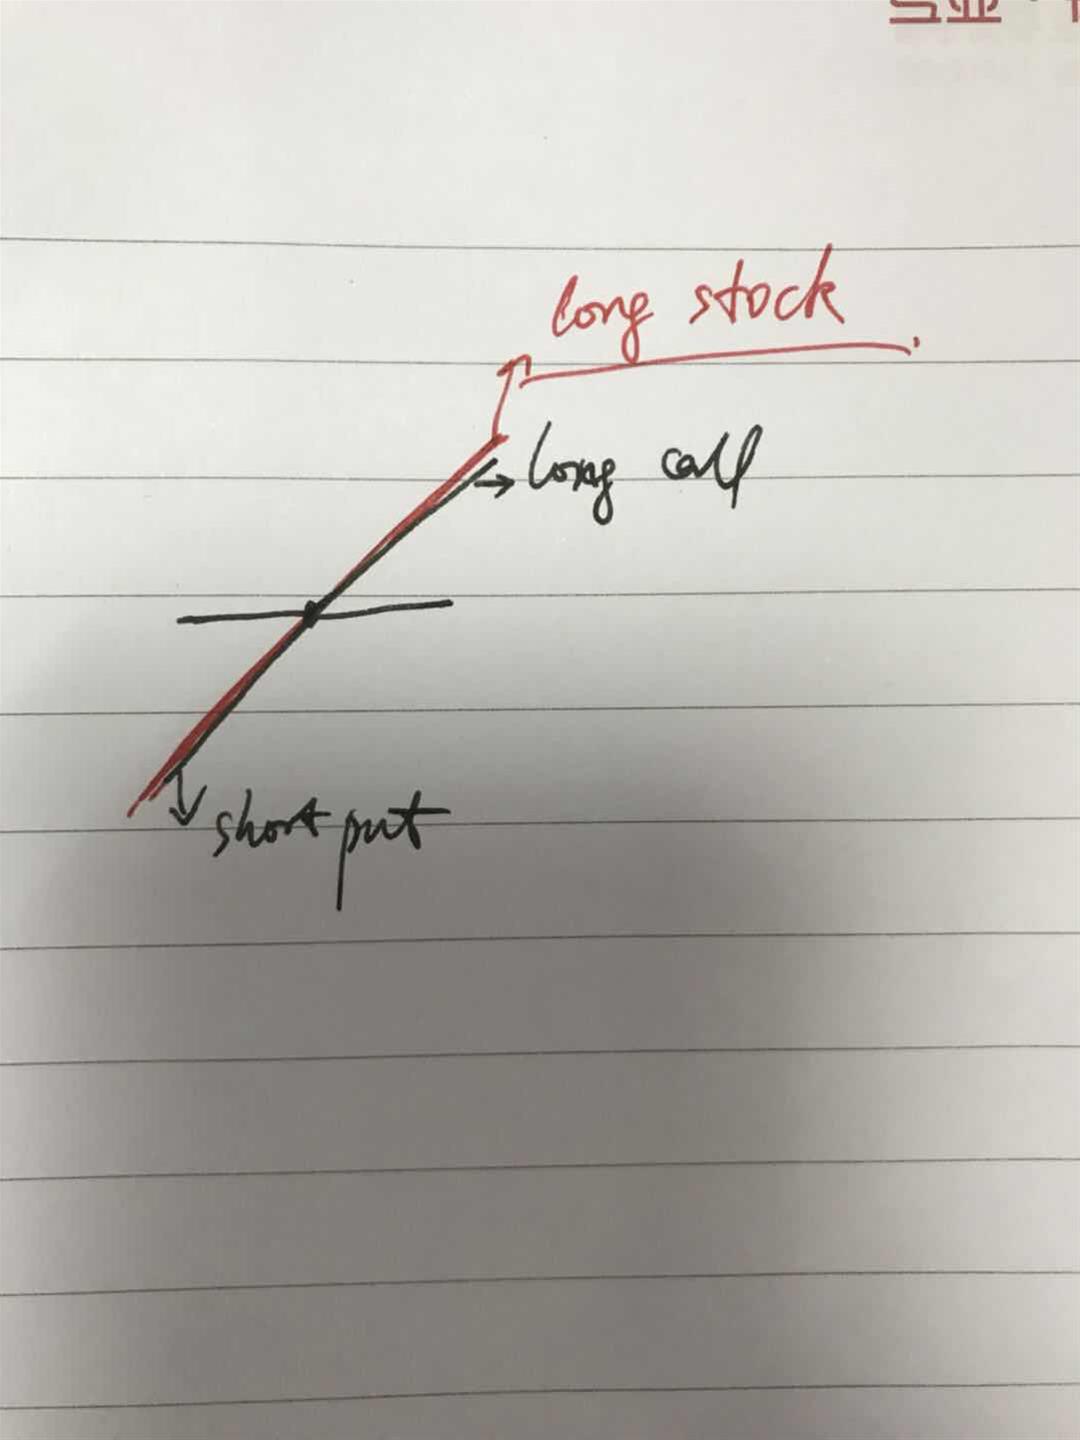 long stock
long call
short put